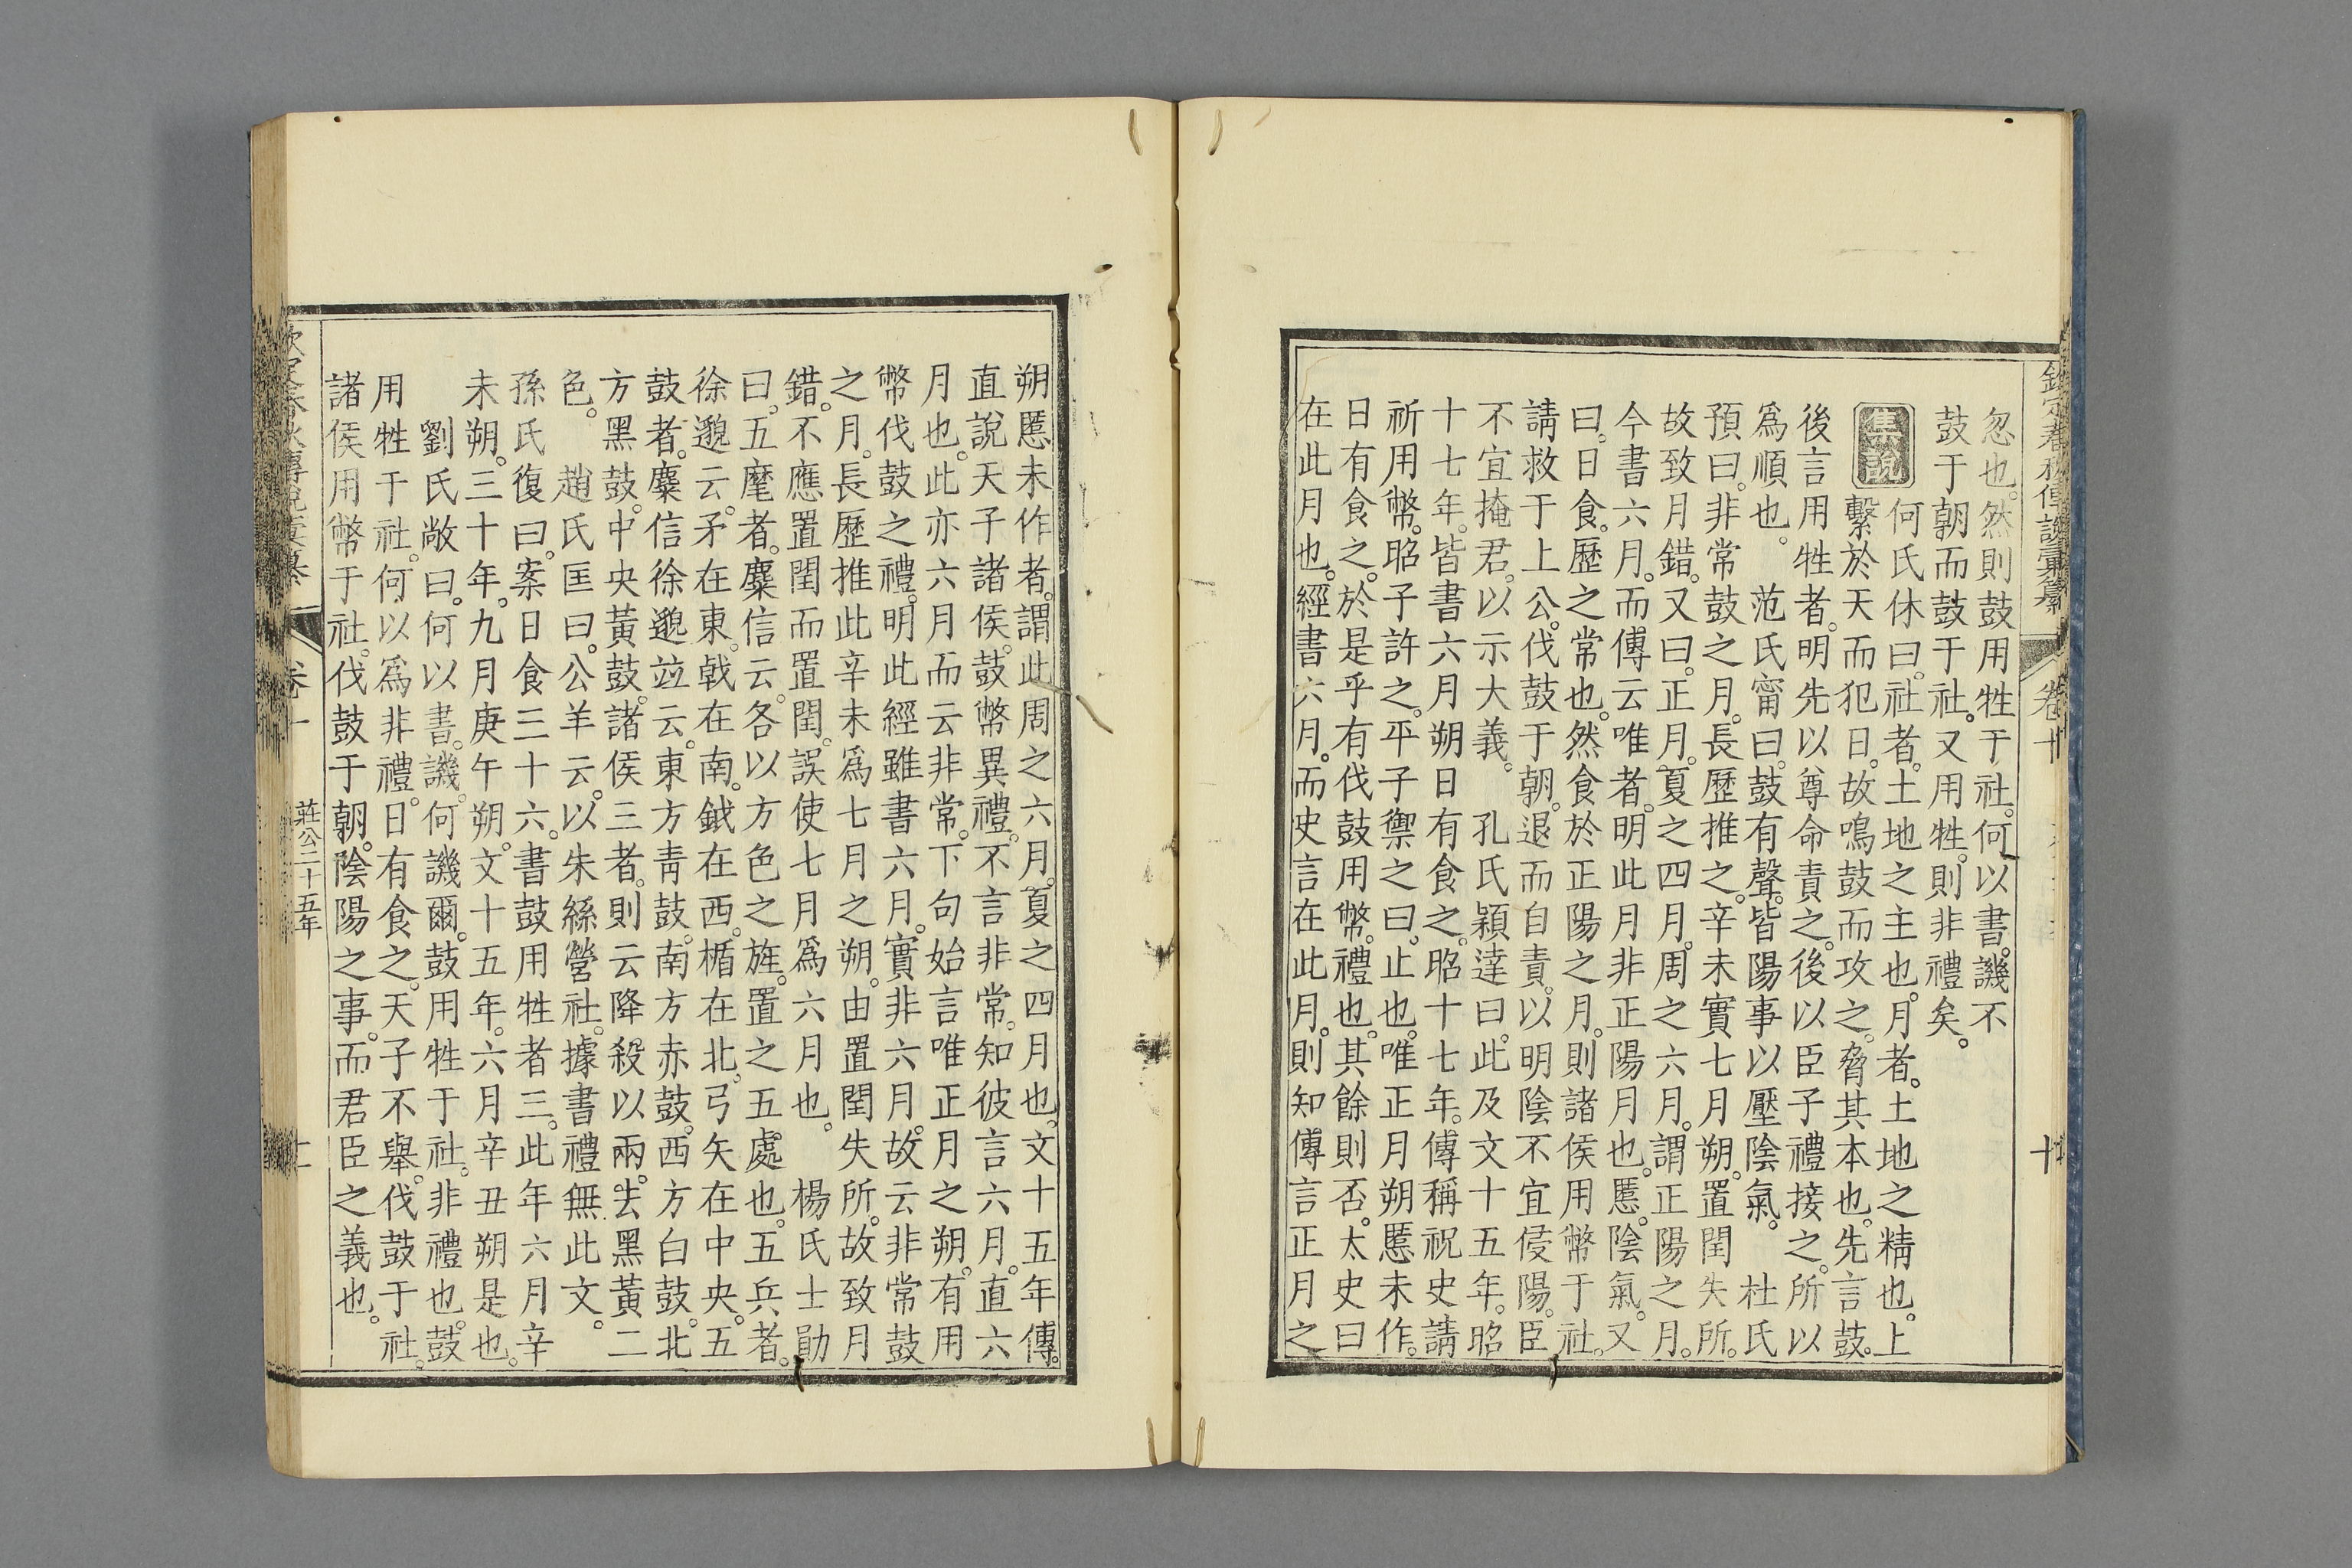 忽也。然則鼓用牲于社。何以書。譏不
鼓于朝而鼓于社。又用牲。則非禮矣。
集說
何氏休曰。社者。土地之主也。月者。土地之精也。上
繫於天而犯日。故鳴鼓而攻之。脅其本也。先言鼓。
後言用牲者。明先以尊命責之。後以臣子禮接之。所以
爲順也。 范氏甯曰。鼓有聲。皆陽事以壓陰氣。 杜氏
預曰。非常鼓之月。長歷推之。辛未實七月朔。置閏失所。
故致月錯。又曰。正月。夏之四月。周之六月。謂正陽之月。
今書六月。而傳云唯者。明此月非正陽月也。慝。陰氣。又
曰。日食。歷之常也。然食於正陽之月。則諸侯用幣于社。
請救于上公。伐鼓于朝。退而自責。以明陰不宜侵陽。臣
不宜掩君。以示大義。 孔氏穎達曰。此及文十五年。昭
十七年。皆書六月朔日有食之。昭十七年。傳稱祝史請
所用幣。昭子許之。平子禦之曰。止也。唯正月朔慝未作。
日有食之。於是乎有伐鼓用幣。禮也。其餘則否。太史曰
在此月也。經書六月。而史言在此月。則知傳言正月之
卷十
十
朔慝未作者。謂此周之六月。夏之四月也。文十五年傳。
直說天子諸侯。鼓幣異禮。不言非常。知彼言六月。直六
月也。此亦六月而云非常。下句始言唯正月之朔。有用
幣伐鼓之禮。明此經雖書六月。實非六月。故云非常鼓
之月。長歷推此辛未爲七月之朔。由置閏失所。故致月
錯。不應置閏而置閏。誤使七月爲六月也。 楊氏士勛
曰。五麾者。麋信云。各以方色之旌。置之五處也。五兵者。
徐邈云。矛在東。戟在南。鉞在西。楯在北。弓矢在中央。五
鼓者。麋信徐邈竝云。東方靑鼓。南方赤鼓。西方白鼓。北
方黑鼓。中央黃鼓。諸侯三者。則云降殺以兩。去黑黃二
色。 趙氏匡曰。公羊云。以朱絲營社。據書禮無此文。
孫氏復曰。案日食三十六。書鼓用牲者三。此年六月辛
未朔。三十年。九月庚午朔。文十五年。六月辛丑朔是也。
劉氏敞曰。何以書。譏。何譏爾。鼓用牲于社。非禮也。鼓
用牲于社。何以爲非禮。日有食之。天子不舉。伐鼓于社。
諸侯用幣于社。伐鼓于朝。陰陽之事。而君臣之義也。
莊公二十五年